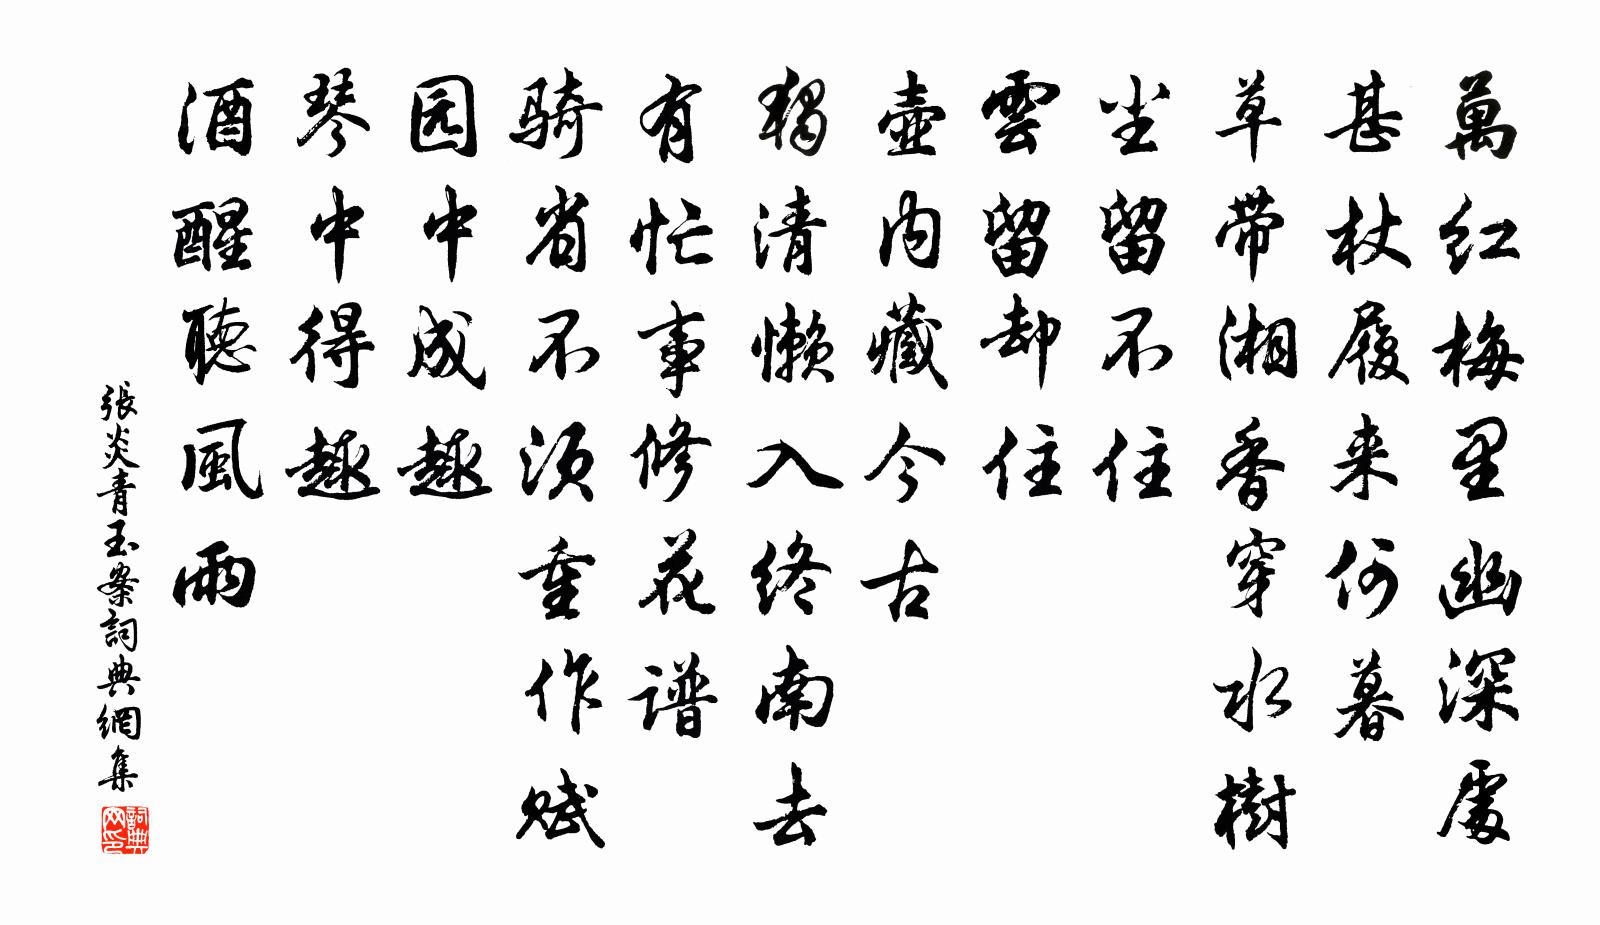 萬红梅里幽深處
甚杖履来何暮
草带湘香穿水樹
尘留不住
雲留却住
壶内藏今古
獨清懒入终南去
有忙事修花谱
骑省不须重作赋
园中成趣
琴中得趣
酒醒聽風雨
張炎青玉案詞典網集
詞典网印